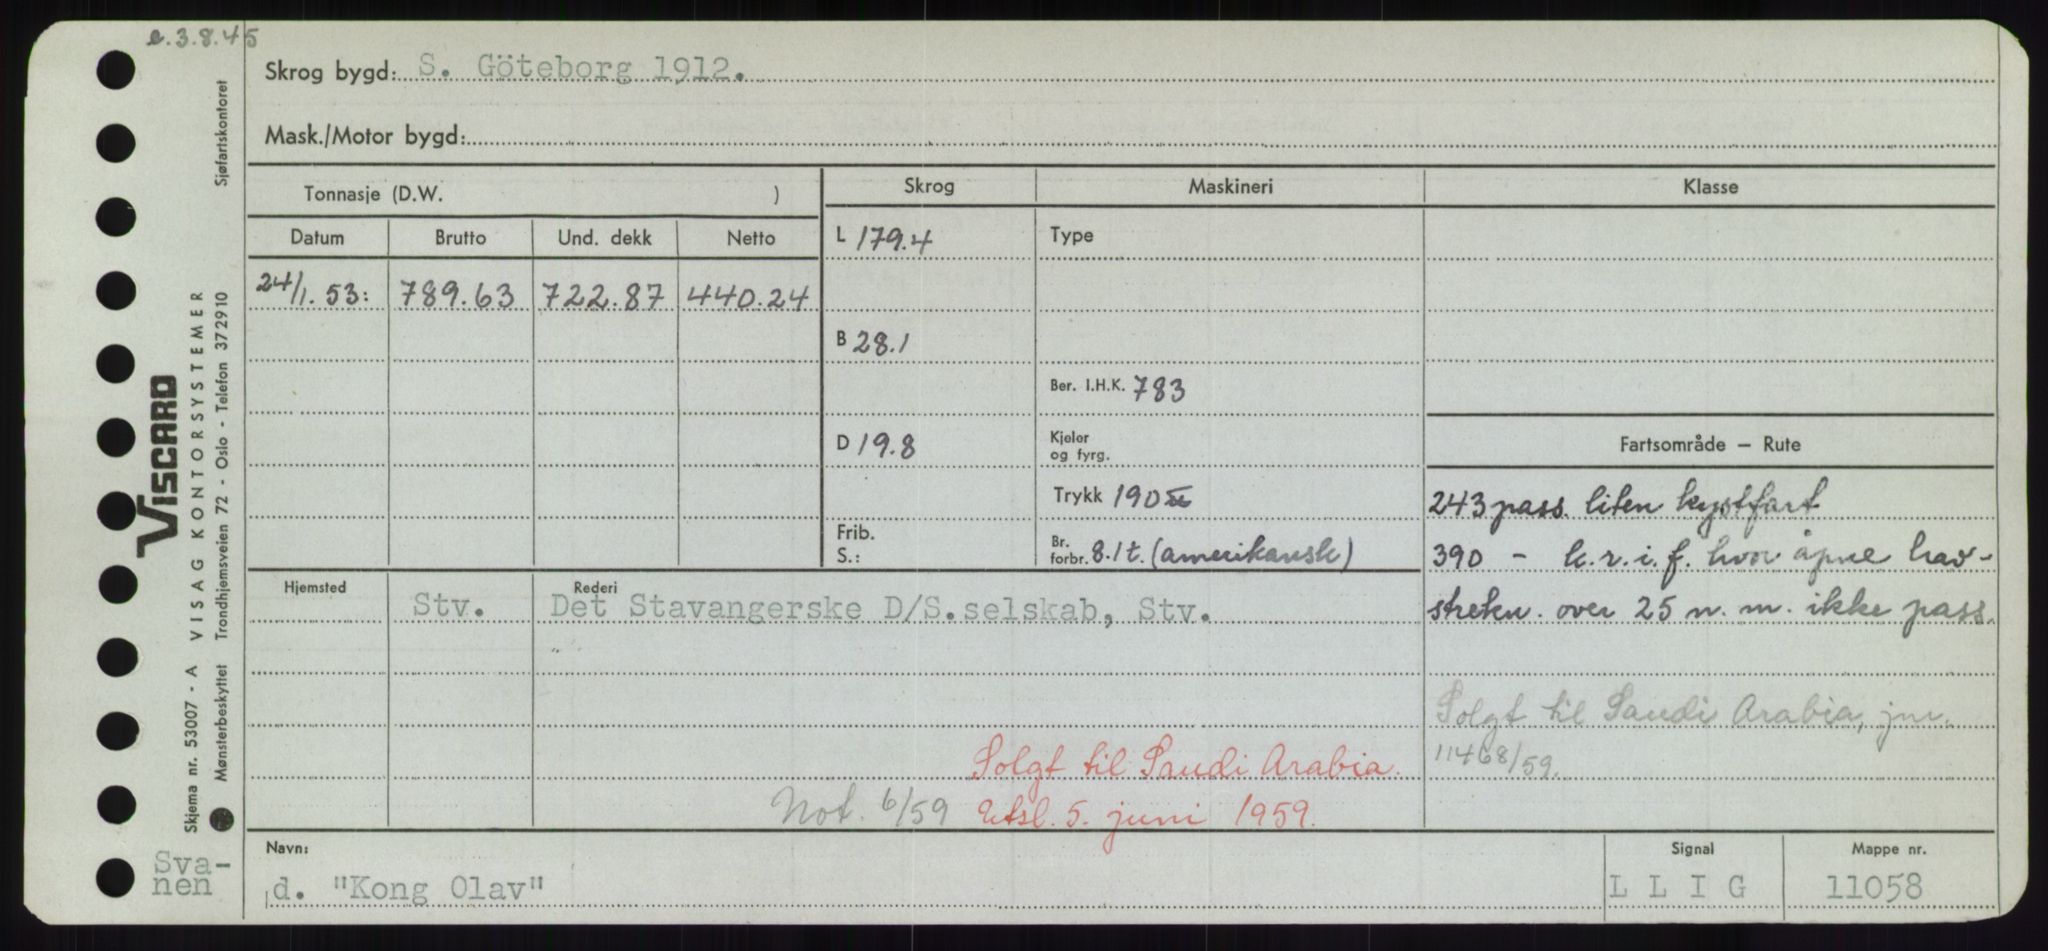 e.3.8.45
Skrog bygd: S. Göteborg 1912.
Mask./Motor bygd:
Tonnasje (D.W. )
Skrog
Maskineri
Klasse
Datum Brutto Und. dekk Netto
L 179.4
Type
24/1.53: 789.63 722.87 440.24
B 28.1
Ber. I.H.K. 783
D 19.8
Kjeler
og fyrg.
Fartsområde — Rute
Trykk 190
243 pass. liten kystfart
Frib.
S.:
Br.
forbr. 8.1 t. (amerikansk)
390 - k.r.i.f. hvor åpne hav-
strekn. over 25 n.m. ikke pass.
Hjemsted
Stv.
Rederi
Det Stavangerske D/S.selskab, Stv.
Solgt til Saudi Arabia, jnr.
11468/59.
Solgt til Saudi Arabia.
Not. 6/59 Utsl. 5. juni 1959.
Navn:
d. "Kong Olav"
Signal
L L I G
Mappe nr.
11058
Sva-
nen
VISCARD
VISAG KONTORSYSTEMER
Skjema nr. 53007 - A
Mønsterbeskyttet Trondhjemsveien 72 - Oslo - Telefon 372910
Sjøfartskontoret